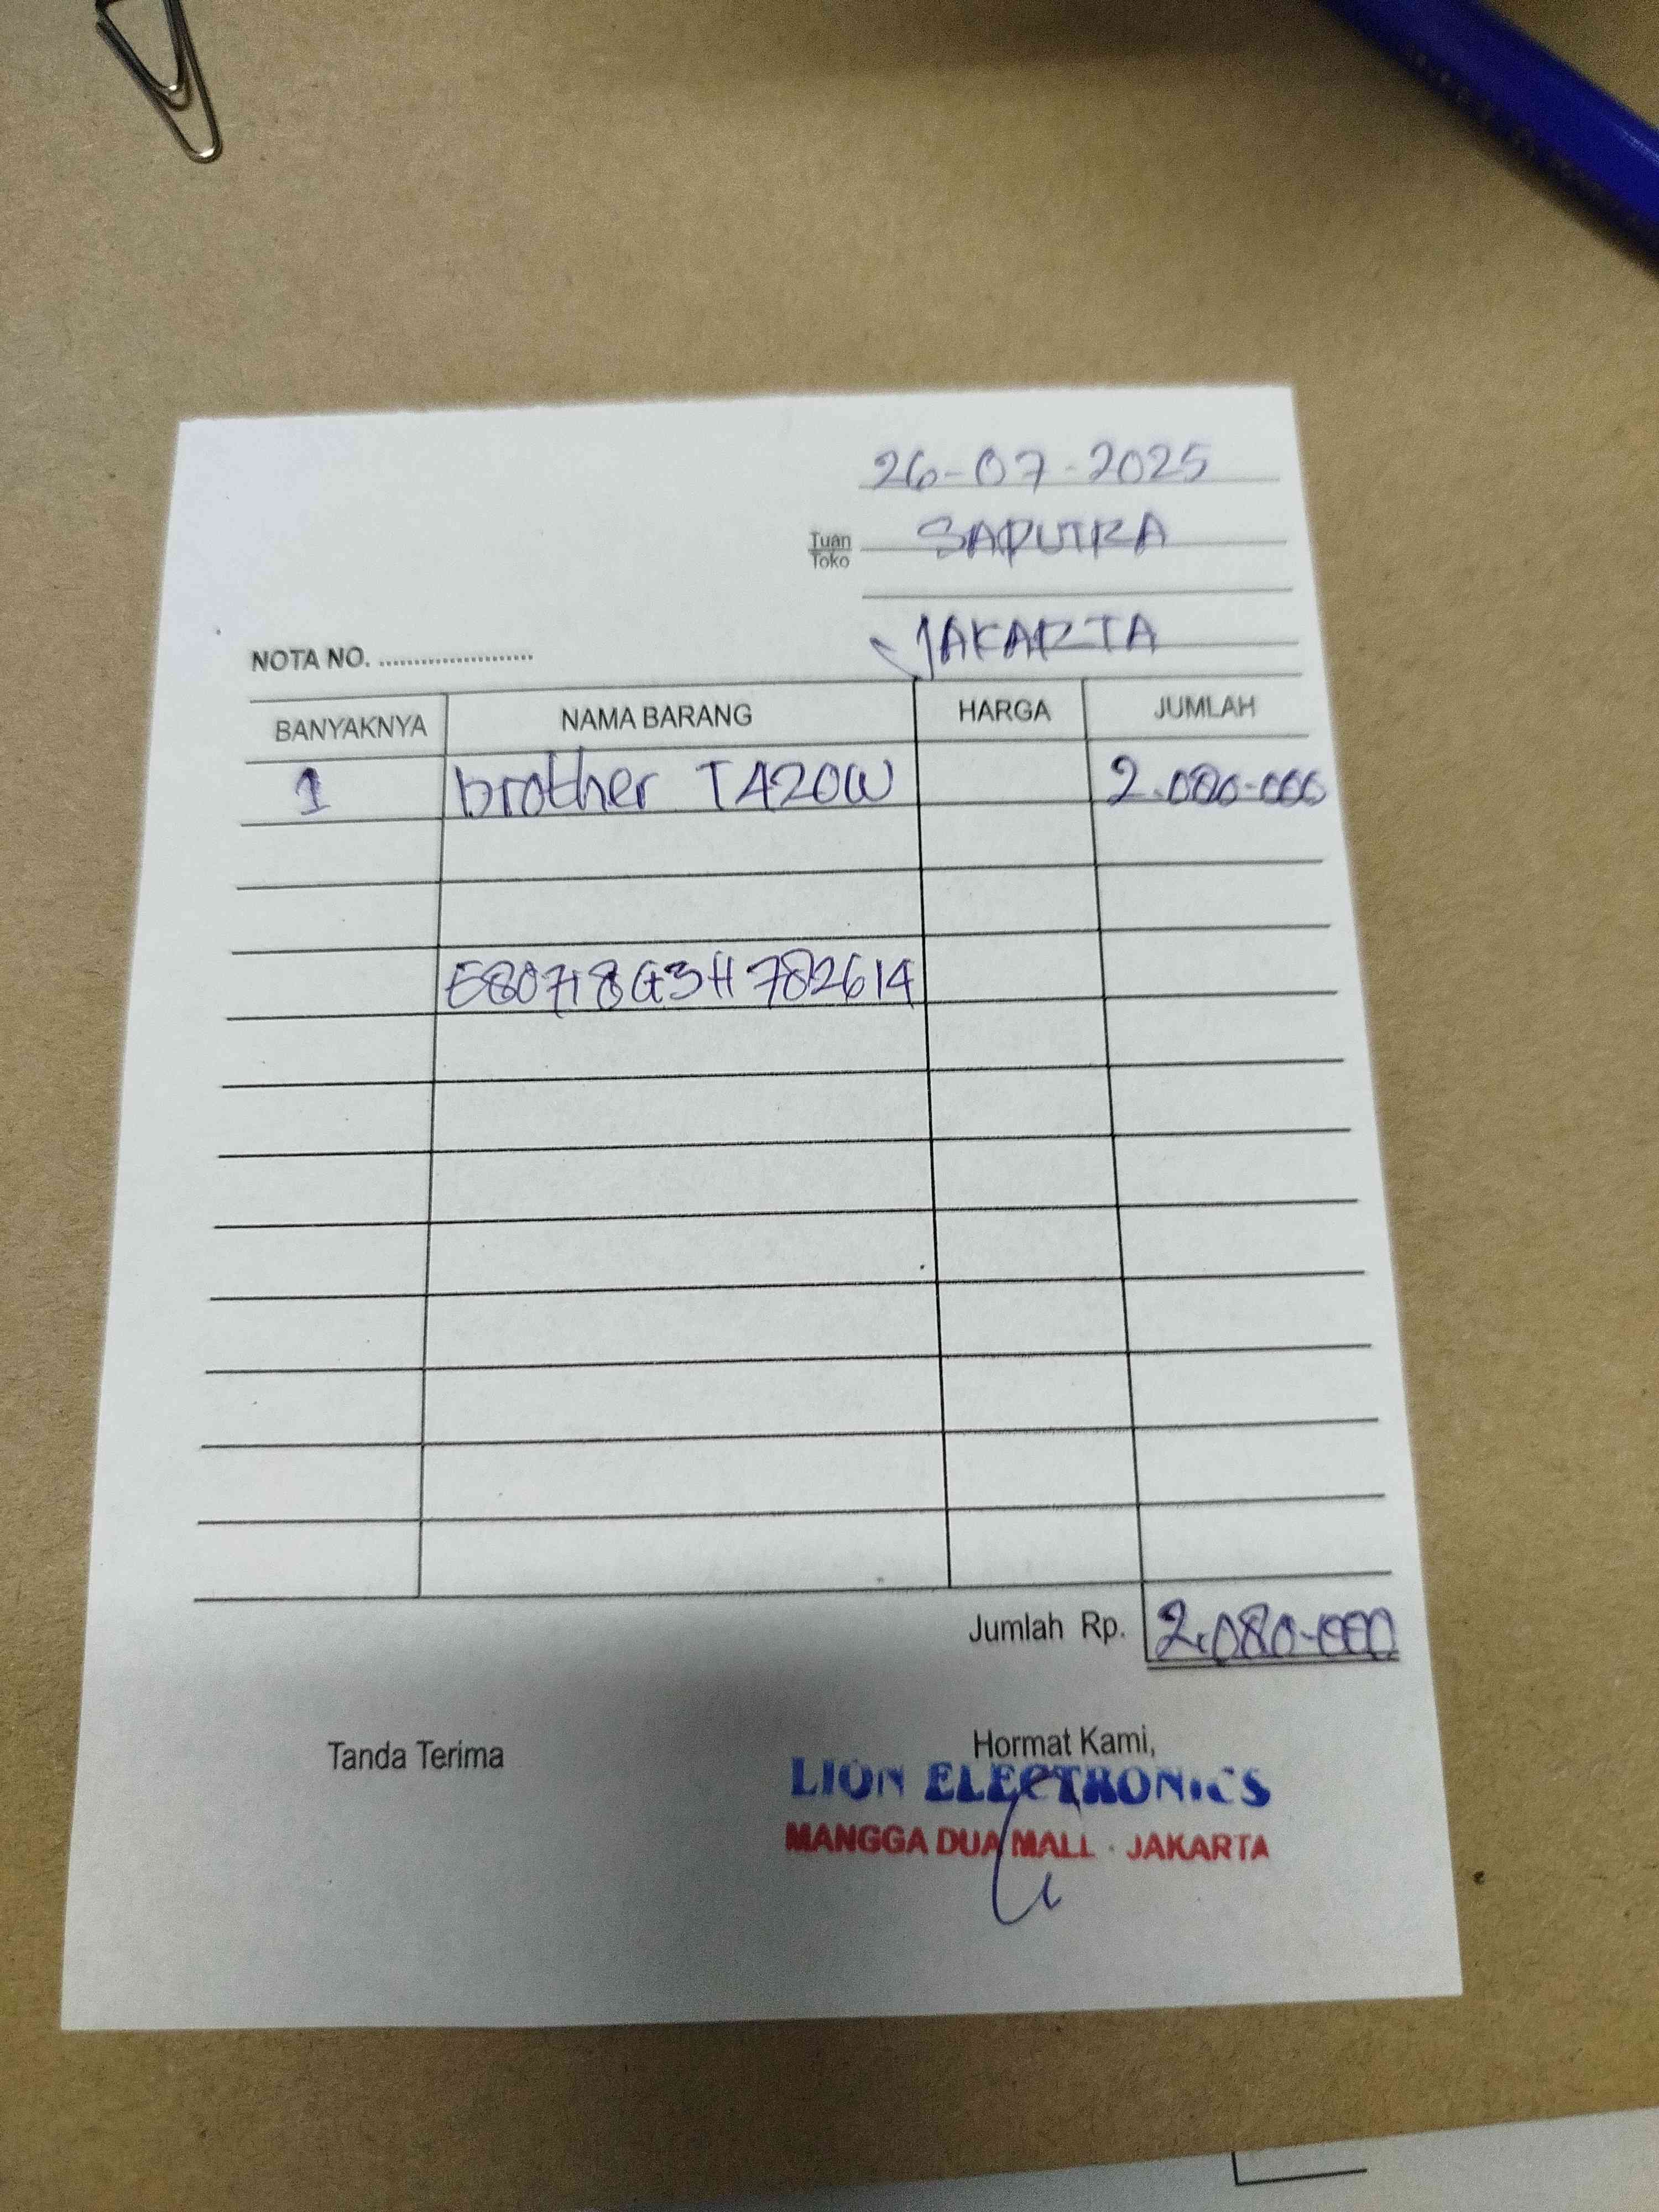 26-07-2025
Tuan
Toko
SAPUTRA
JAKARTA
NOTA NO. ......................
BANYAKNYA NAMA BARANG HARGA JUMLAH
1 brother T420W 2.080.000
E80718G3H782614
Jumlah Rp. 2.080.000
Tanda Terima Hormat Kami,
LION ELECTRONICS
MANGGA DUA MALL - JAKARTA